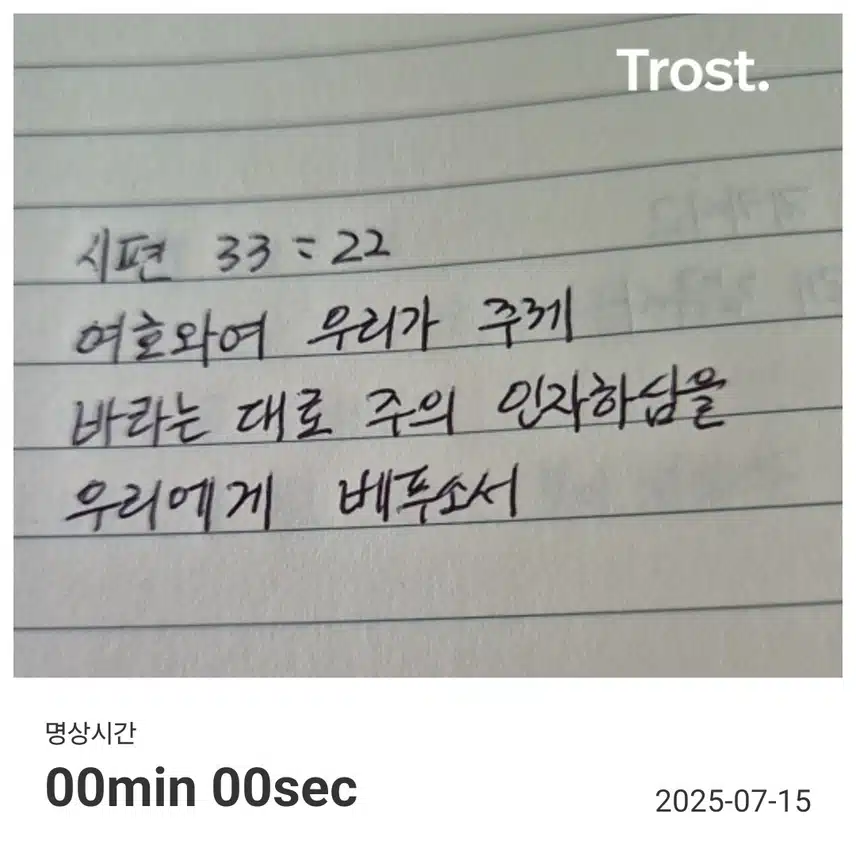 Trost.
시편 33:22
여호와여 우리가 주께
바라는 대로 주의 인자하심을
우리에게 베푸소서
명상시간
00min 00sec
2025-07-15